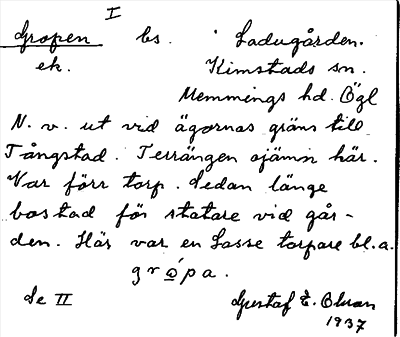 I
Gropen bs. Ladugården.
ek. Kimstads sn.
Memmings hd. Ögl
N. v. ut vid ägornas gräns till
Tångstad. Terrängen ojämn här.
Var förr torp. Sedan länge
bostad för statare vid går-
den. Här var en Lasse torpare bl.a.
gro̲´pa.
Se II Gustaf E. Olsson
1937